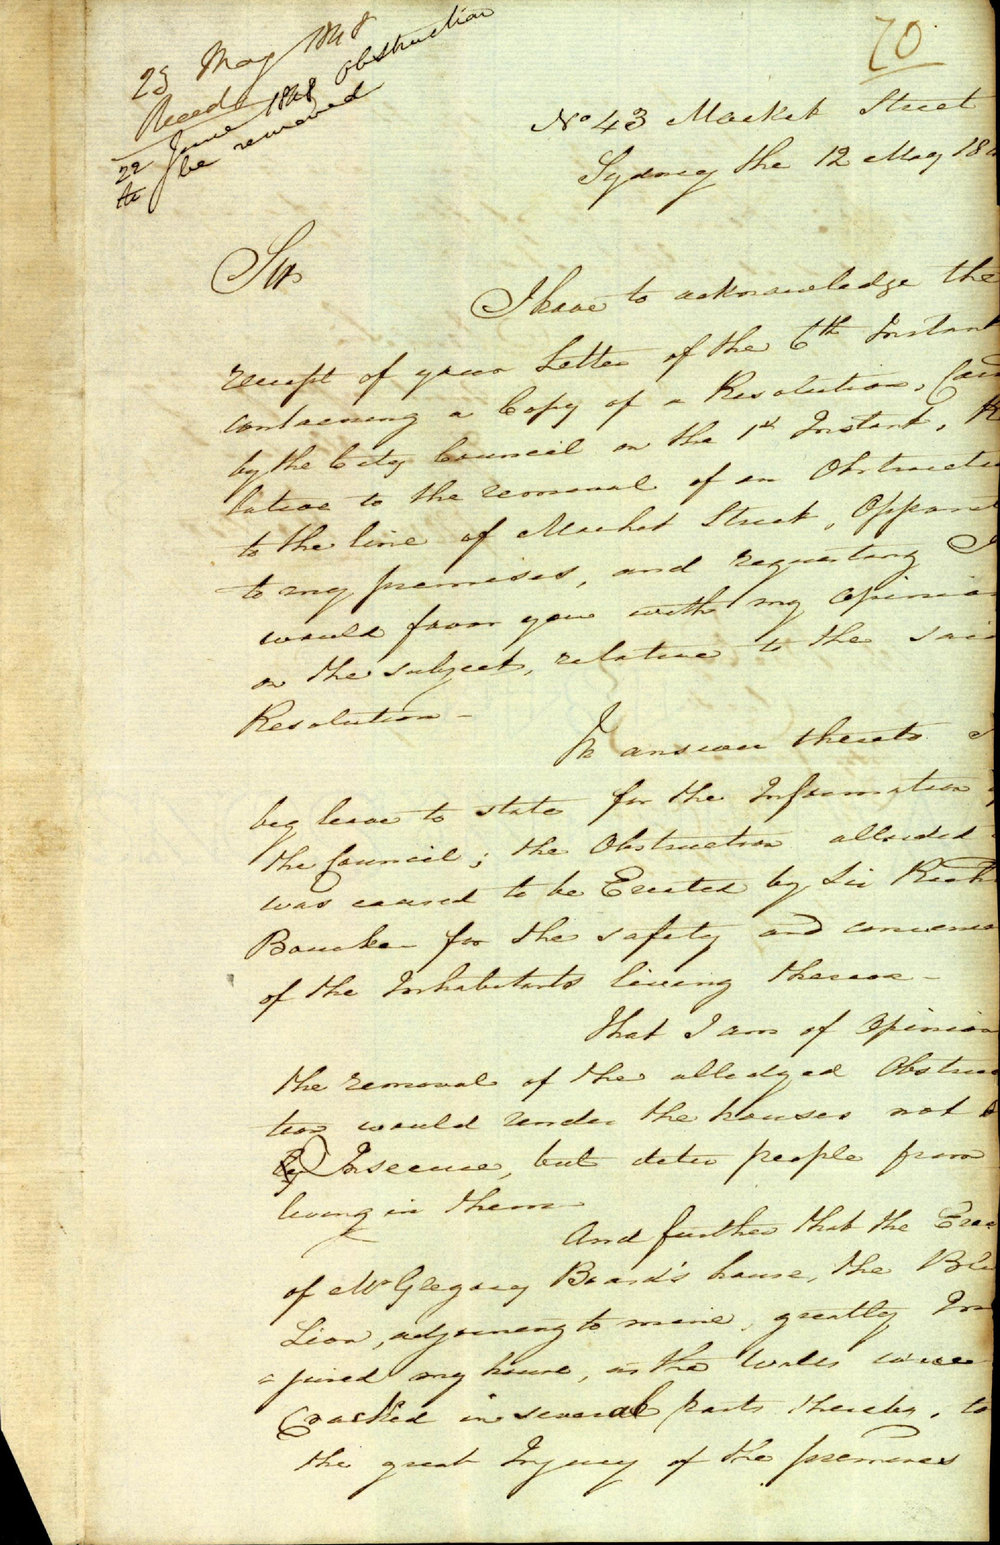 25 May 1848
Recd
22 June 1848 Obstruction
to be removed
70
No 43 Market Street
Sydney the 12 May 18
Sir
I have to acknowledge the
receipt of your Letter of the 6th Instant
containing a Copy of a Resolution,
by the City Council on the 1st Instant, Re
lative to the removal of an Obstructi
to the line of Market Street, Opposit
to my premises, and requesting I
would favor you with my Opinion
on the subject, relative to the said
Resolution -
In answer thereto I
beg leave to state for the Information
the Council; the Obstruction alluded
was caused to be Erected by Sir Rich
Bourke for the safety and convenien
of the Inhabitants living thereon -
That I am of Opinion
the removal of the alledged Obstruc
tion would render the houses not
Insecure, but deter people from
living in them
And further that the Erec
of Mr Gregory Board's house, the
Lion, adjoining to mine, greatly In
jured my house, as the walls were
Cracked in several parts thereby, to
the great Injury of the premises